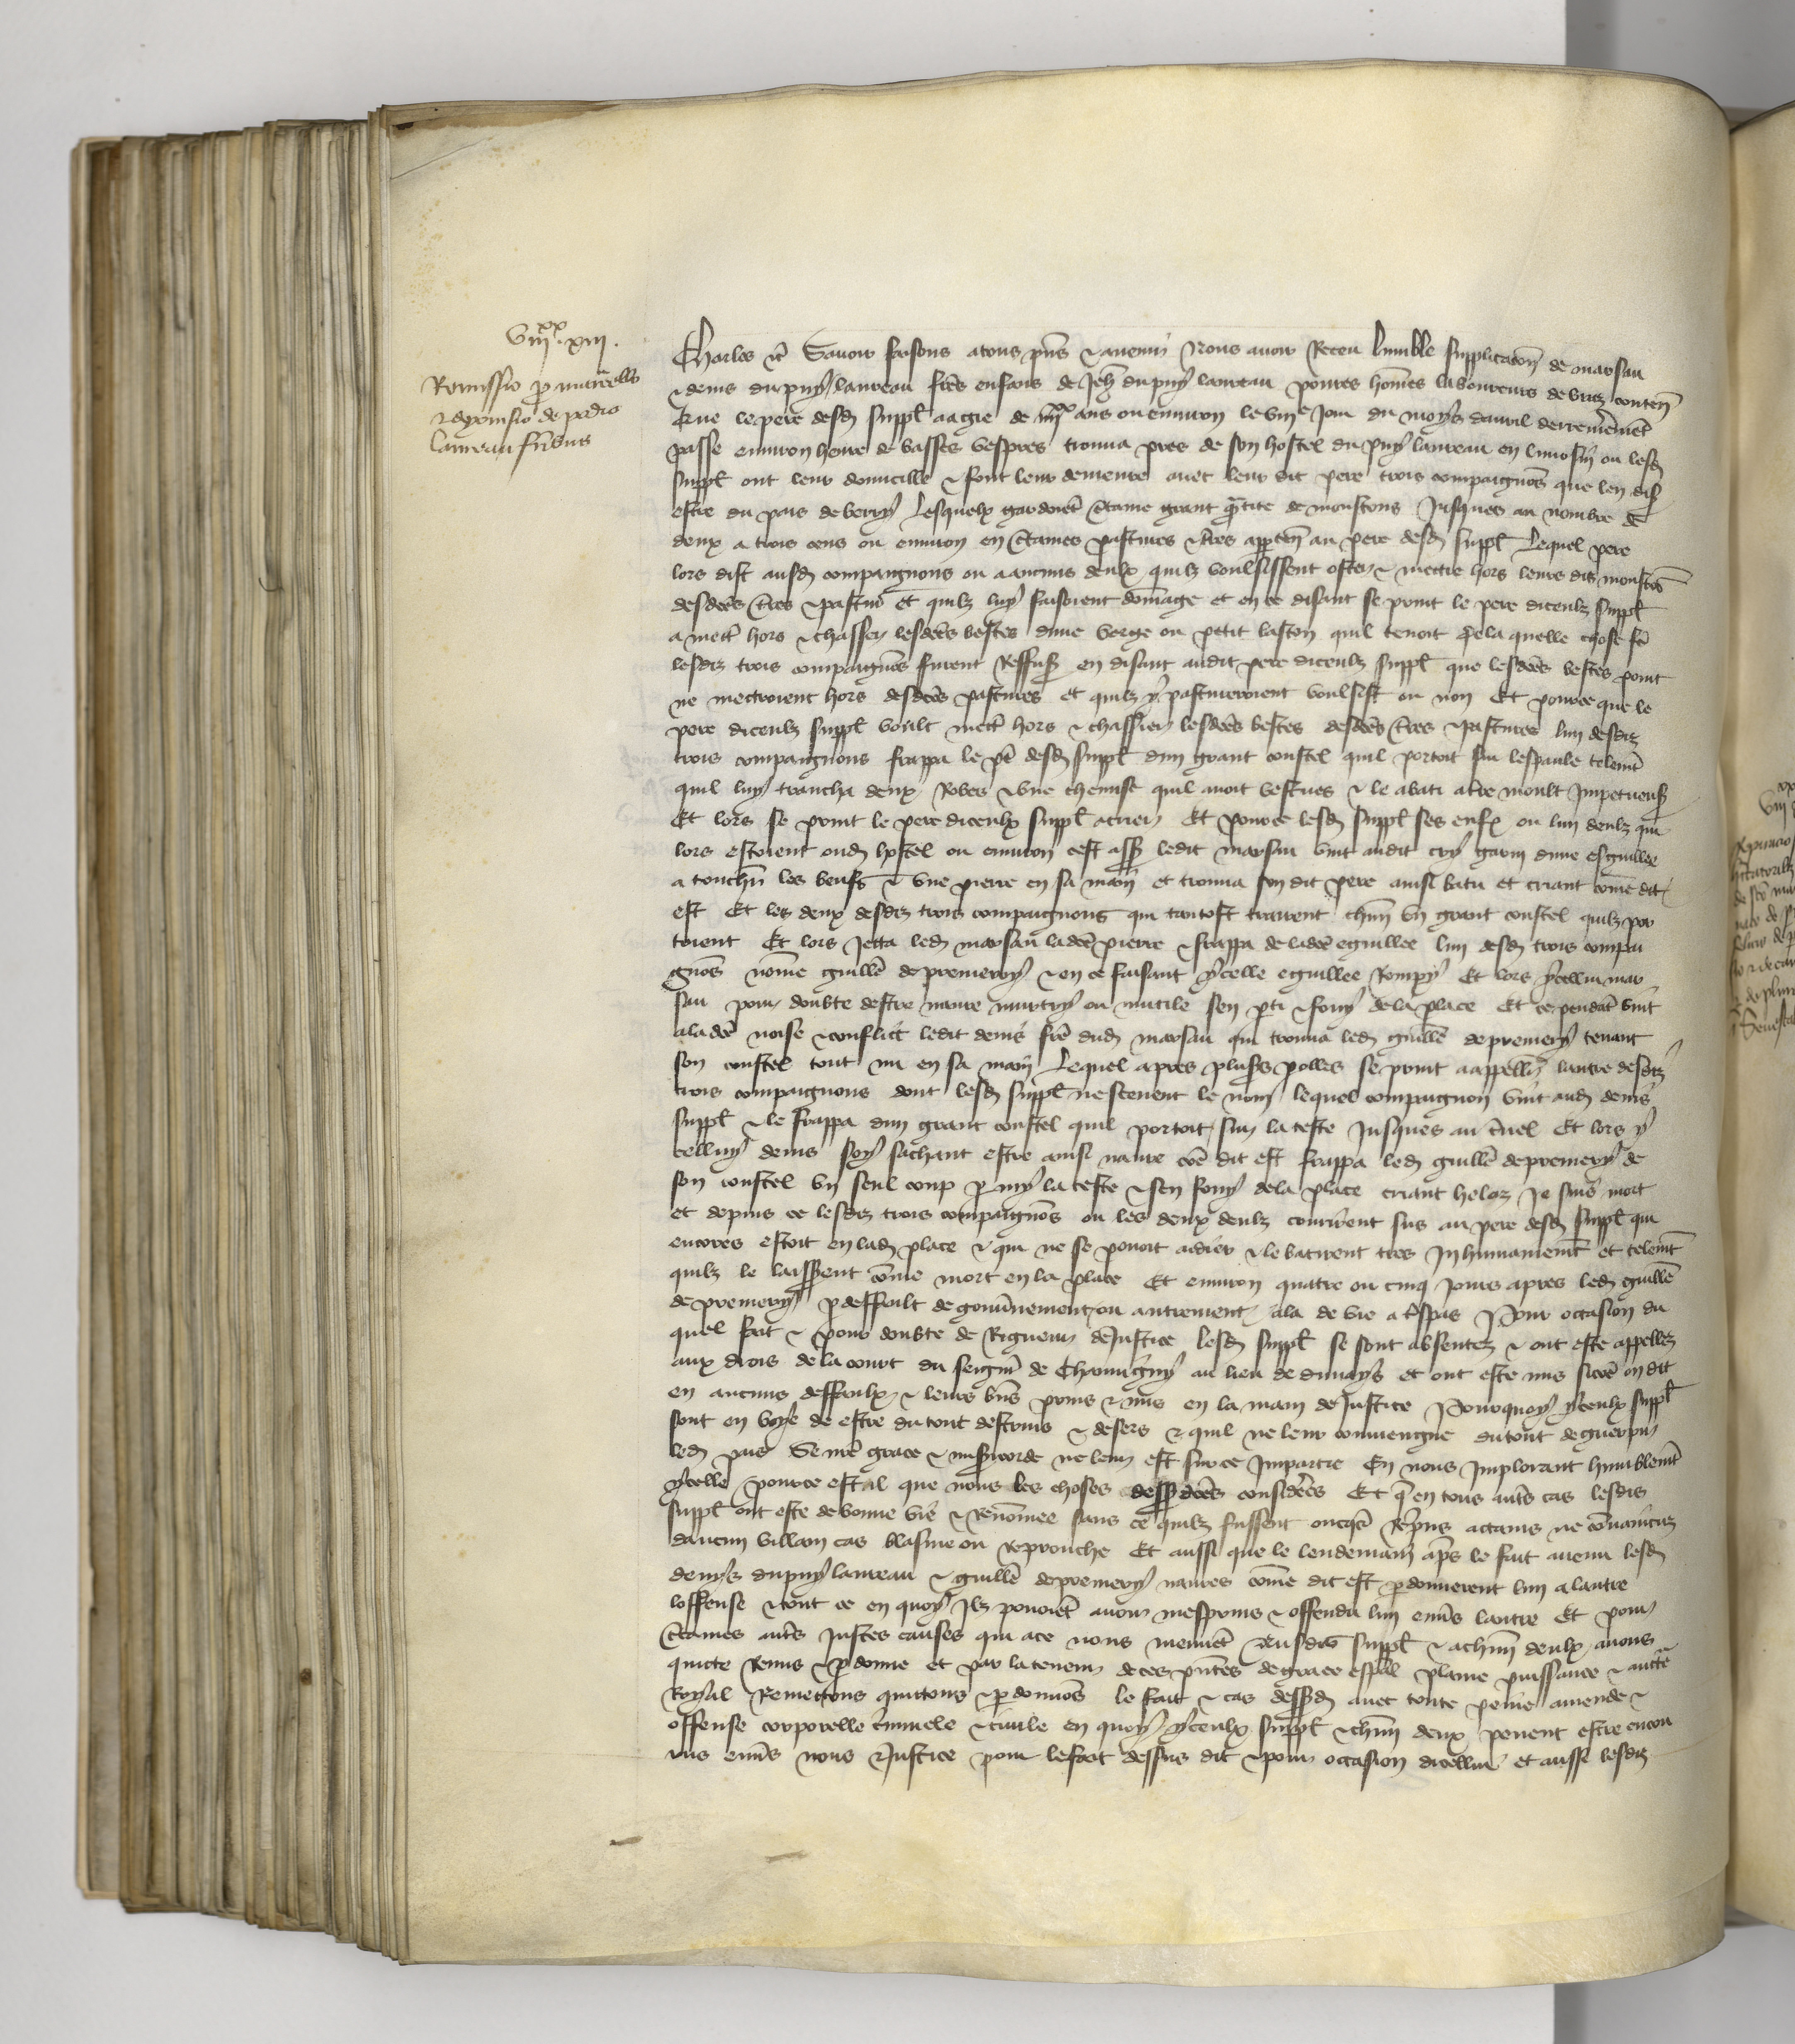 viiixx xiii.
Remissio p marcello
& dyonisio de podio
laureau frībus
Charles etc Savoir faisons a tous pñs & avenir Nous avoir Receu lumble supplicacōn de marsau
& denis du puy laureau frēs enfans de Jeh du puy laureau povres hōmes laboureurs de bras conteñ
Que le pere desd suppl aagie de iiiixx ans ou environ le viiie Jour du moys davril derrenieremēt
passe environ heure de basses vespres trouva pres de son hostel du puy laureau en limosin ou lesd
suppl ont leur domicille & font leur demeure avec leur dit pere trois compaignōs que len dis
estre du pais de berry Lesquelx gardoiēt c̄taine grant q̄ntite de moustons Jusques au nombre de
deux a trois cens ou environ en c̄taines pastures & t̄res apptēn au pere desd suppl Lequel pere
lors dist ausd compaignons ou a aucuns deulx quilz voulsissent oster & mectre hors leurs diz moustōs
desdcēs t̄res & pastures Et quilz luy faisoient dommage et en ce disant se print le pere diceulz suppl
a mect hors & chasser lesdcēs bestes dune verge ou petit baston quil tenoit De la quelle chose fē
lesdiz trois compaignōs furent Reffus en disant audit pere diceulz suppl que lesdcēs bestes point
ne mectroient hors desdcēs pastures et quilz y pastureroient voulsist ou non Et pource que le
pere diceulz suppl voult mect hors & chassier lesdcēs bestes desdcēs t̄res & pastures lun desdiz
trois compaignons frappa le pē desd suppl dun grant coustel quil portoit sur lespaule telemēt
quil luy trancha deux Robes & une chemise quil avoit vestues & le abati a t̄re moult Impetueuss
Et lors se print le pere diceulx suppl a crier Et pource lesd suppl ses enfs ou lun deulz qui
lors estoient oud hostel ou environ cest ass ledit marsau vint audit cry garni dune esguillee
a touchier les beufs & une pierre en sa main et trouva son dit pere ainsi batu et criant cōme dit
est Et les deux desdiz trois compaignons qui tantost tirerent chūn un grant coustel quilz por
toient Et lors Jecta led marsau ladcē pierre & frappa de ladcē eguillee lun desd trois compai
gnōs nōme guille de premery & en ce faisant ycelle eguillee Rompy Et lors ycellui mar
sau pour doubte destre navre murtry ou mutile sen pti & fouy de la place Et ce pendāt vint
a la dcē noise & conflict ledit denis frē dud marsau qui trouva led guille de premery tenant
son coustel tout nu en sa main Lequel apres pluss polles se print a appeller lautre desdiz
trois compaignons dont lesd suppl ne scevent le nom lequel compaignon vint aud denis
suppl & le frappa dun grant coustel quil portoit sur la teste Jusques au cvel Et lors y
celluy denis soy sachant estre ainsi navre cōe dit est frappa led guille de premery de
son coustel un seul coup p my la teste & sen fouy de la place criant helaz Je suis mort
et depuis ce lesdiz trois compaignōs ou les deux deulz coururent sus au pere desd suppl qui
encores estoit en lad place & qui ne se povoit aidier & le batirent tres Inhumainemēt et telemēt
quilz le laisserent cōme mort en la place Et environ quatre ou cinq Jours apres led guille
de premery p deffault de gouvnement ou autrement ala de vie a t̄spas Pour occasion du
quel fait & pour doubte de Rigueur de Justice lesd suppl se sont absentez & ont este appellez
aux drois de la court du seignr de Chauvigny au lieu de dunays et ont este mis sicōe on dit
en aucuns deffaulx & leurs bñs prins & mis en la main de Justice Pourquoy yceulx suppl
sont en voye de estre du tout destruis & desers & quil ne leur conviengne du tout deguerpir
led pais Se nre grace & misericorde ne leur est sur ce Impartie En nous Implorant humblemēt
ycelle pource est il que nous les choses dessdcēs considēes Et q en tous autēs cas lesdis
suppl ont este de bonne vie & Renōmee sans ce quilz fussent oncqes Reprins actains ne cōvaincuz
daucun villain cas blasme ou reprouche Et aussi que le lendemain aps le fait avenu lesd
denys du puy laureau & guille de premery navres cōme dit est p donnerent lun a lautre
loffense & tout ce en quoy Ilz povoiēt avoir mesprins & offendu lun enūs lautre Et pour
c̄taines autēs Justes causes qui a ce nous meuvēt Ausdiz suppl & a chūn deulx avons
quicte Remis & p donne et par la teneur de ces pñtes de grace espāl plaine puissance & auctē
Royal Remectons quictons & p donnōs le fait & cas dessusd avec toute peine amende &
offense corporelle cminele & civile en quoy yceulx suppl & chūn deux pevent estre encou
rus enūs nous & Justice pour le fait dessus dit & pour occasion dicellui et aussi lesdiz